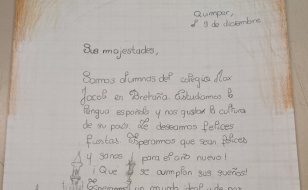 Quimper,
el 9 de diciembre
Sus majestades,
Somos alumnas del colegio Max
Jacob en Bretaña. Estudiamos la
lengua española y nos gusta la cultura
de su país. Le deseamos felices
fiestas. Esperamos que sean felices
y sanos para el año nuevo!
Que se cumplan sus sueños!
Esperamos un mundo